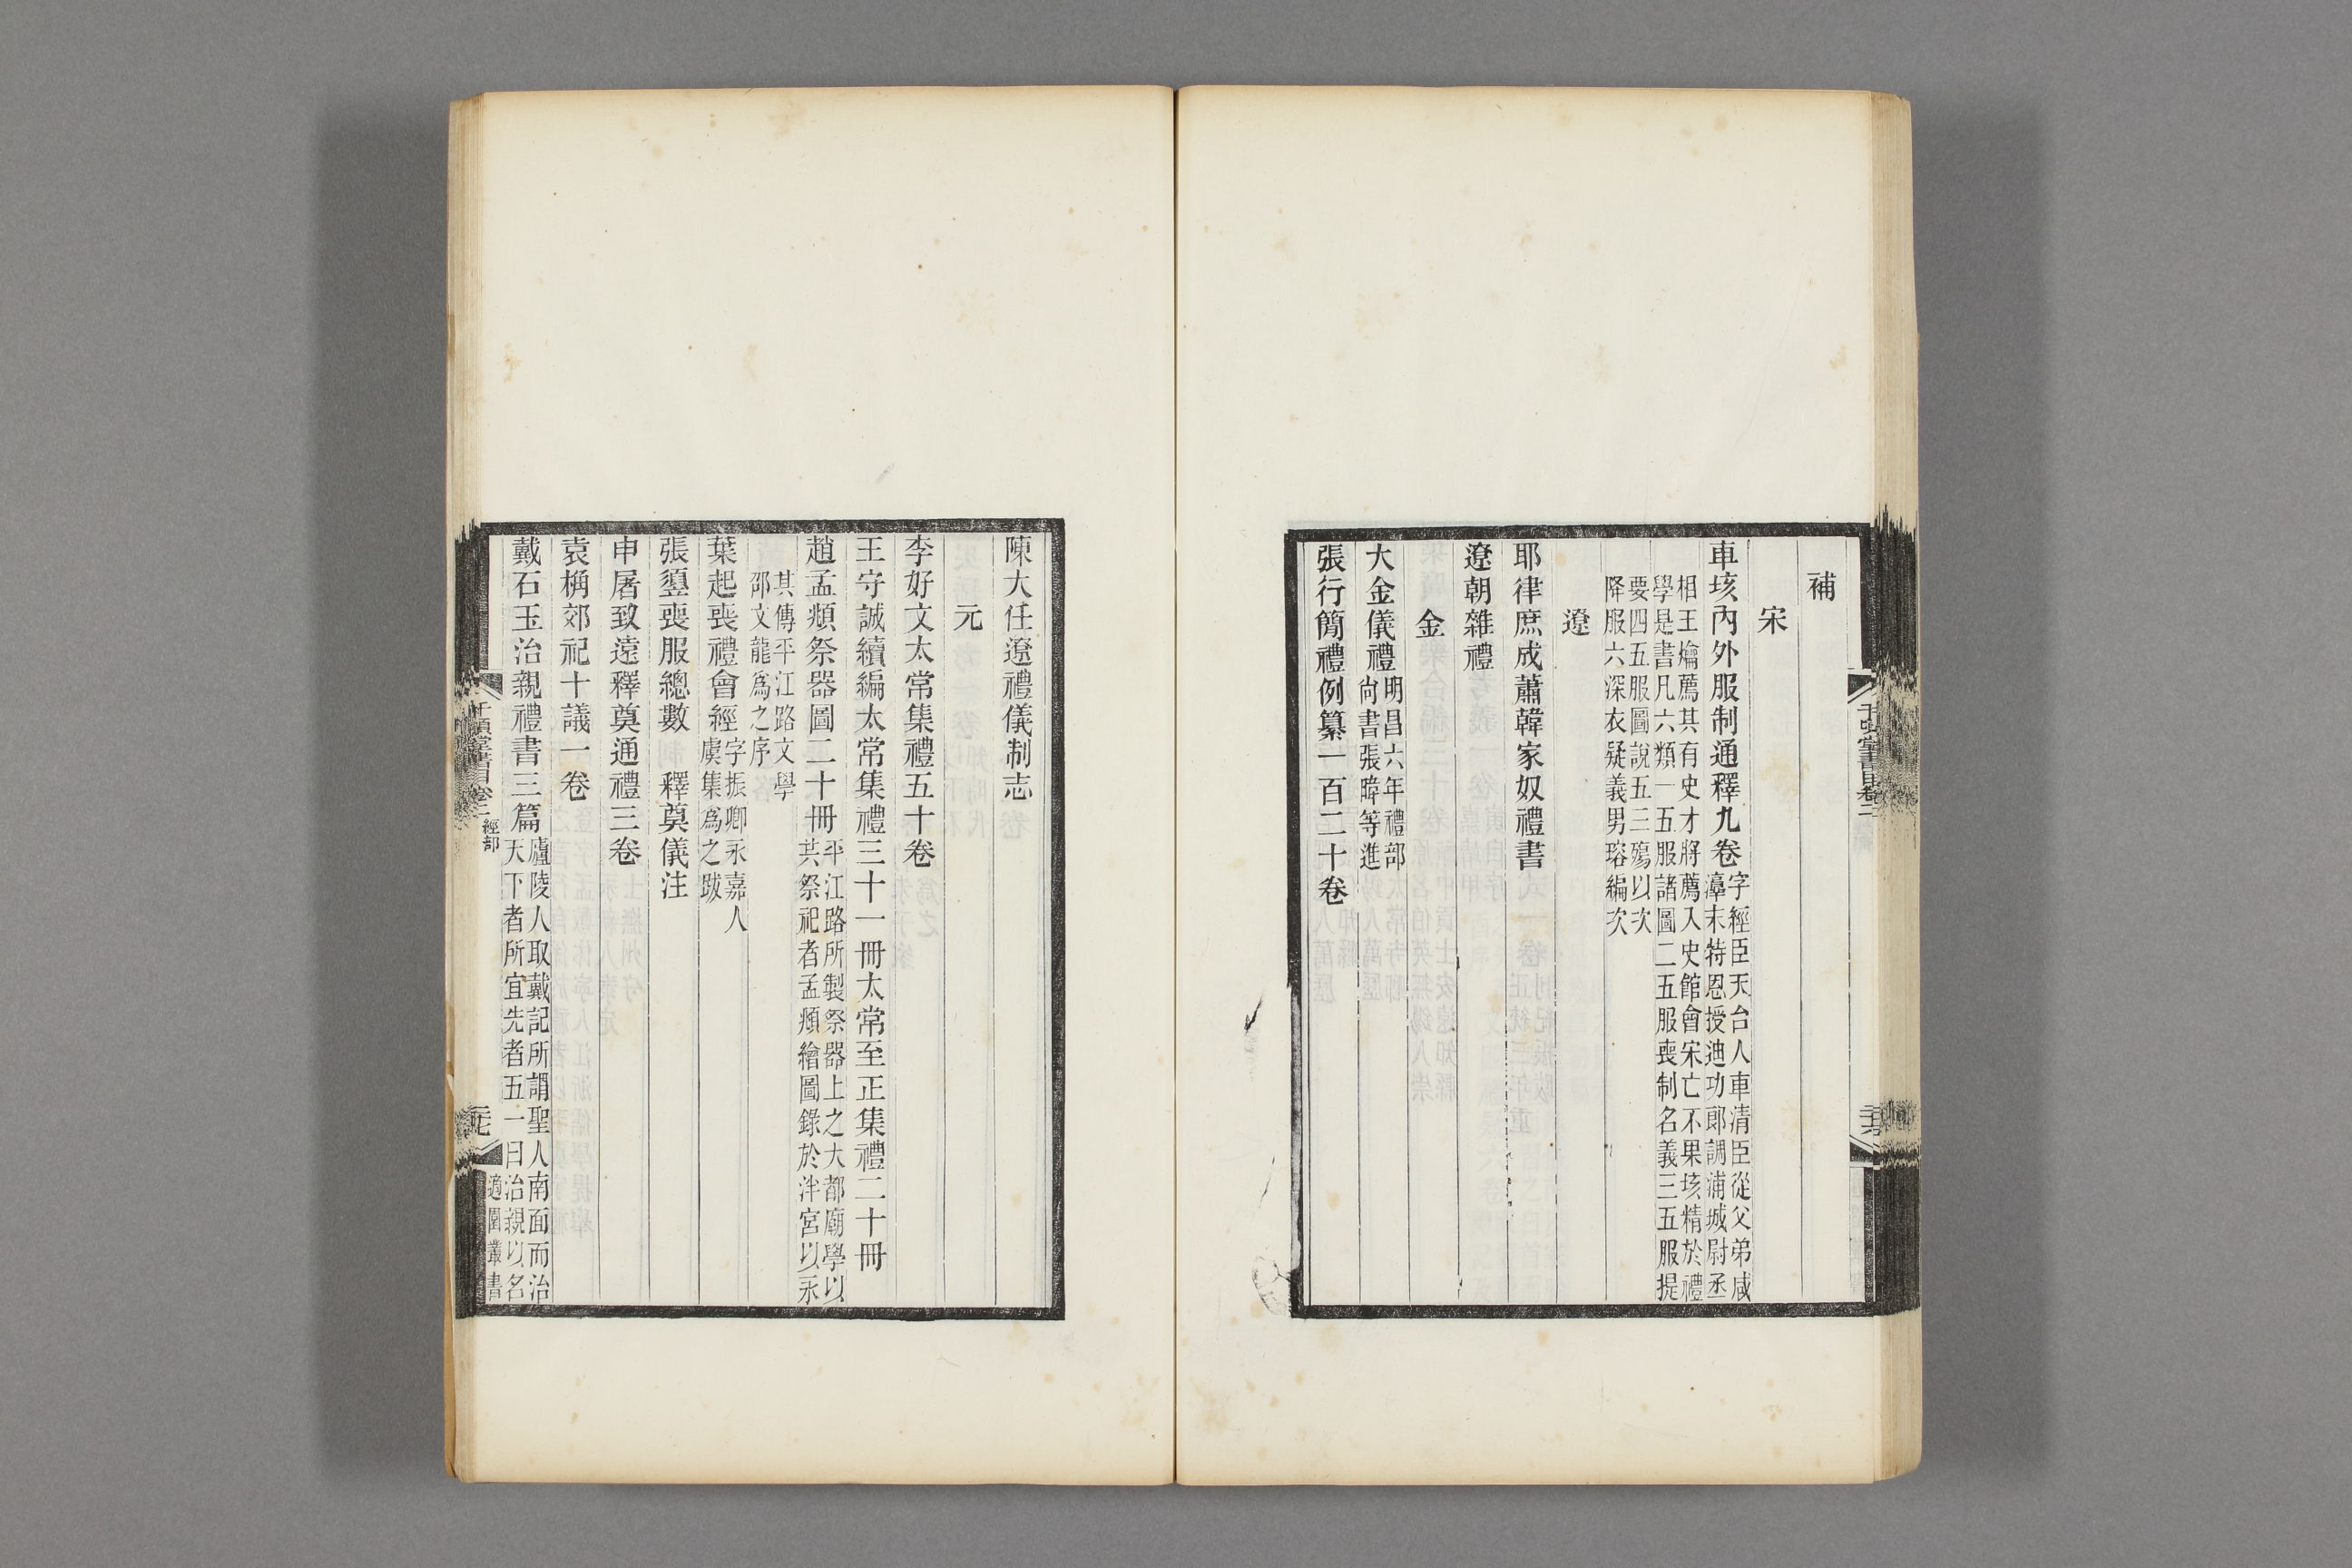 補
宋
車垓內外服制通釋九卷
字經臣天台人車清臣從父弟咸
淳末特恩授迪功郎調浦城尉丞
相王爚薦其有史才將薦入史館會宋亡不果垓精於禮
學是書凡六類一五服諸圖二五服喪制名義三五服提
要四五服圖說五三殤以次
降服六深衣疑義男瑢編次
遼
耶律庶成蕭韓家奴禮書
遼朝雜禮
金
大金儀禮
明昌六年禮部
尚書張暐等進
張行簡禮例纂一百二十卷
陳大任遼禮儀制志
元
李好文太常集禮五十卷
王守誠續編太常集禮三十一冊太常至正集禮二十冊
趙孟頫祭器圖二十冊
平江路所製祭器上之大都廟學以
其祭祀者孟頫繪圖錄於泮宮以永
其傳平江路文學
邵文龍爲之序
葉起喪禮會經
字振卿永嘉人
虞集爲之跋
張𩫇喪服總數 釋奠儀注
申屠致遠釋奠通禮三卷
袁桷郊祀十議一卷
戴石玉治親禮書三篇
廬陵人取戴記所謂聖人南面而治
天下者所宜先者五一曰治親以名
千頃堂書目卷二 經部
適園叢書